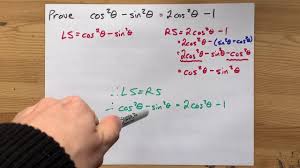 Prove cos²θ - sin²θ = 2cos²θ - 1
LS = cos²θ - sin²θ
RS = 2cos²θ - 1
= 2cos²θ - (sin²θ + cos²θ)
= 2cos²θ - sin²θ - cos²θ
= cos²θ - sin²θ
∴ LS = RS
∴ cos²θ - sin²θ = 2cos²θ - 1